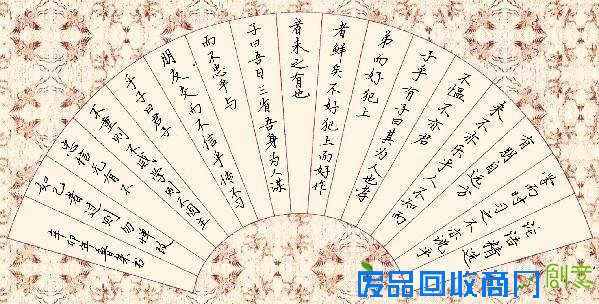 论语精选
学而时习之不亦说乎
有朋自远方
来不亦乐乎人不知而
不愠不亦君
子乎有子曰其为人也孝
弟而好犯上
者鲜矣不好犯上而好作
者未之有也
子曰吾日三省吾身为人谋
而不忠乎与
朋友交而不信乎传不习
乎子曰君子
不重则不威学则不固主
忠信无有不
如己者过则勿惮改
辛卯年春日
创意
废品回收商网